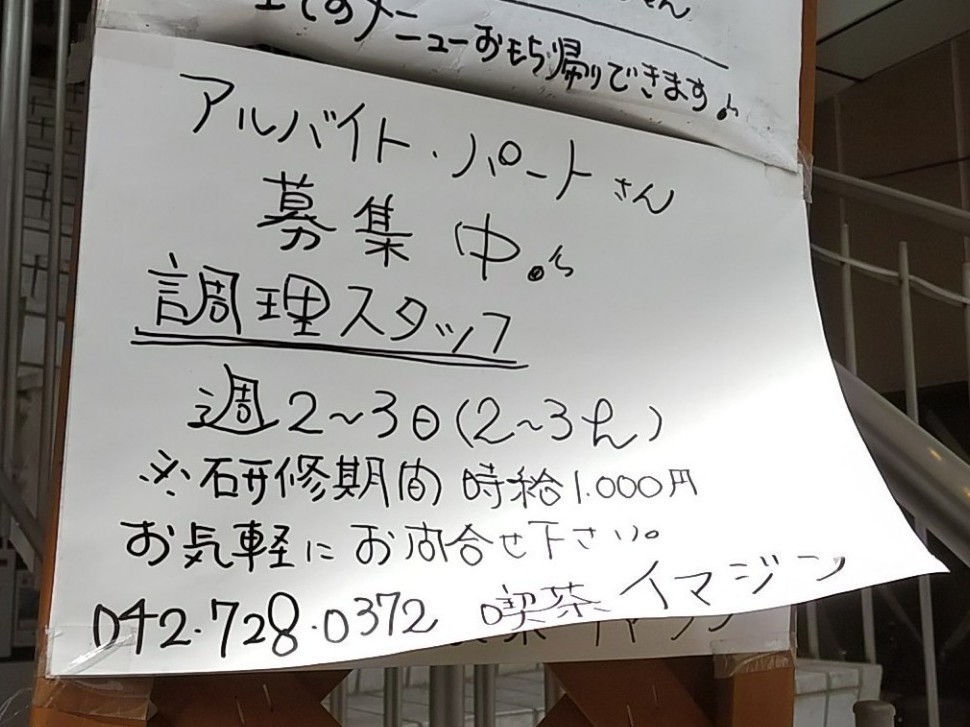 全てのメニューおもち帰りできます♪
アルバイト・パートさん
募集中。
調理スタッフ
週2〜3日(2〜3h)
※研修期間 時給1.000円
お気軽にお問合せ下さい。
042.728.0372 喫茶 イマジン